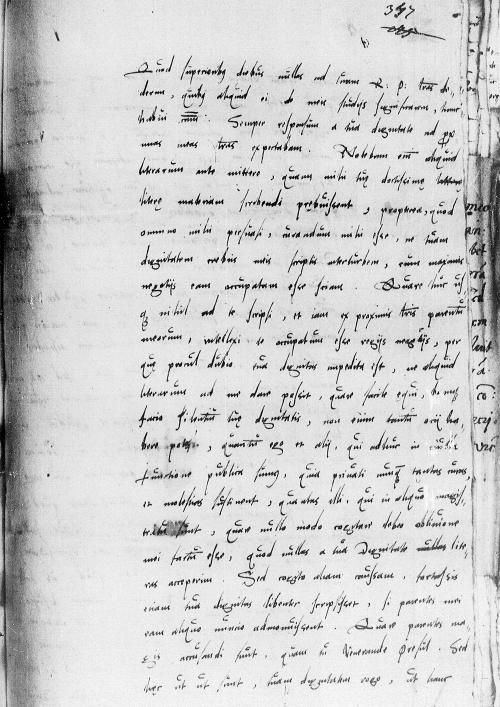 397
Quod superioribus diebus nullas ad tuam R. p. tras de,
derim, quibus aliquid ei de meis studijs significarem, hanc
habui
Semper responsum a tua dignitate ad pri
mas meas tras expectabam. Nolebam eni aliquid
literarum ante mittere, quam mihi tuę doctissimę
literę materiam scribendi prębuissent, propterea, quod
omnino mihi persuasi, curandum mihi esse, ne tuam
dignitatem crebris meis scriptis interturbem, cum maximis
negotijs eam occupatam esse sciam. Quare huc us
q nihil ad te scripsi, et iam ex proximis tris parentu
meorum, intellexi te occupatum esse regijs negotijs, per
quę procul dubio tua dignitas impedita est, ne aliquid
literarum ad me dare possit, quare facile equi, bo
facio silentiu tuę dignitatis, non enim tantu ocij ha
bere potes, quantu ego et alij, qui adhuc in nulla
functione publica sumus, quia priuati nunq tantas curas,
et molestias sustinent, quantas illi, qui in aliquo magis,
tratu sunt, quare nullo modo cogitare debeo obliuione
mei factu esse, quod nullas a tua Dignitate lite,
ras acceperim. Sed cogito aliam caussam, fortassis
etiam tua dignitas libenter scripsisset, si parentes mei
eam aliquo nuncio admonuissent. Quare parentes ma,
gis accusandi sunt, quam tu Venerande Pręsul. Sed
hęc ut ut sunt, tuam dignitatem rogo, ut hanc